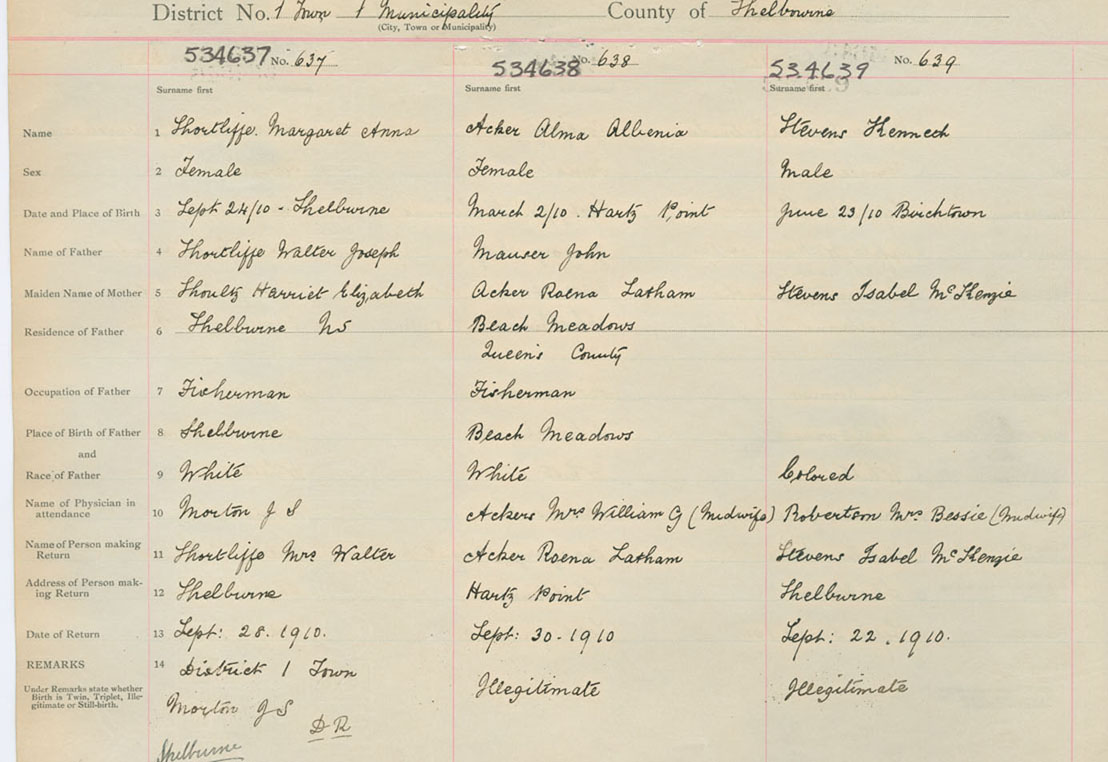 District No. 1 Town & Municipality County of Shelbourne
(City, Town or Municipality)
534637 No. 637 534638 No. 638 534639 No. 639
Surname first Surname first Surname first
Name 1 Shortliffe. Margaret Anna Acker Alma Albenia Stevens Kenneth
Sex 2 Female Female Male
Date and Place of Birth 3 Sept 24/10 - Shelburne March 2/10. Hartz Point June 23/10 Birchtown
Name of Father 4 Shortliffe Walter Joseph Mauser John
Maiden Name of Mother 5 Shoultz Harriet Elizabeth Acker Roena Latham Stevens Isabel McKenzie
Residence of Father 6 Shelburne NS Beach Meadows
Queen's County
Occupation of Father 7 Fisherman Fisherman
Place of Birth of Father 8 Shelburne Beach Meadows
and
Race of Father 9 White White Colored
Name of Physician in
attendance 10 Morton J S Ackers Mrs William G (Midwife) Robertson Mrs Bessie (Midwife)
Name of Person making
Return 11 Shortliffe Mrs Walter Acker Roena Latham Stevens Isabel McKenzie
Address of Person mak-
ing Return 12 Shelburne Hartz Point Shelburne
Date of Return 13 Sept: 28. 1910. Sept: 30-1910 Sept: 22. 1910.
REMARKS 14 District 1 Town
Under Remarks state whether
Birth is Twin, Triplet, Ille-
gitimate or Still-birth. Illegitimate Illegitimate
Morton J S
D R
Shelburne